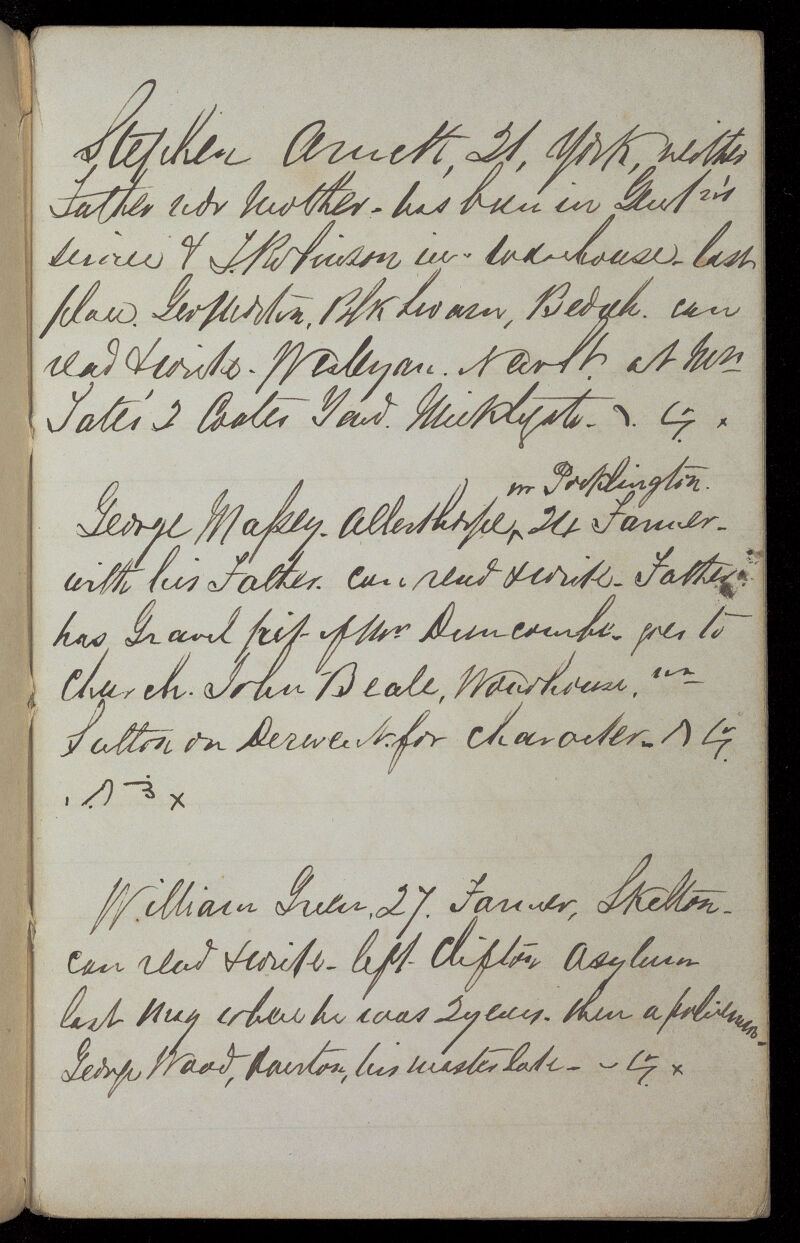 Stephen Arnett, 21, York, neither
Father nor Mother - has been in Gent's
service & T. Robinson in warehouse - last
place. Geo Pedston, Blk Swan, Bedale. can
read & write - Wesleyan. at Mrs
Tates' 2 Coates Yard. Micklegate - x
nr Pocklington.
George Maſsey - Allerthorpe, 24 Farmer -
with his Father. can read & write - Father
has Gravel pit of Mr Duncombe - goes to
Church. John Beale, Woodhouse, nr
Sutton on Derwent. for character -
x
William Green, 27. Farmer, Skelton -
can read & write - left Clifton Asylum
last May where he was 2 years. then a policeman -
George Wood, his master late - x